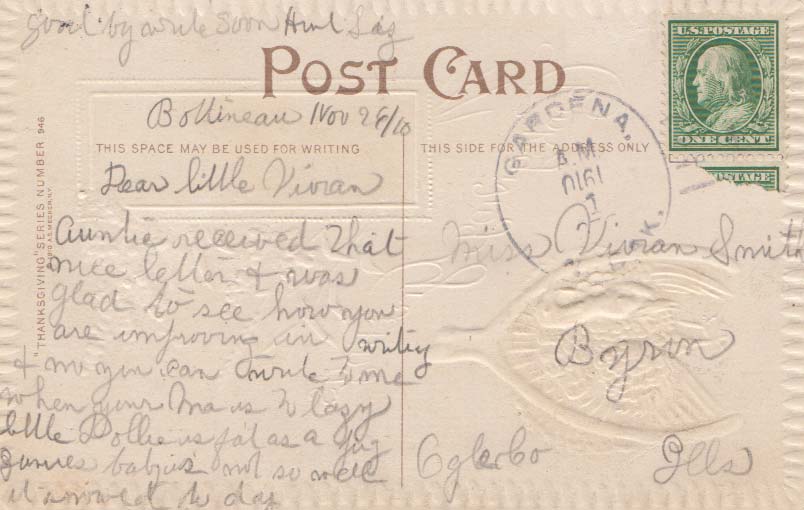 good by write soon Aunt
POST CARD
U.S. POSTAGE
ONE CENT
POSTAGE
GARDENA,
A.M.
1910
"THANKSGIVING" SERIES NUMBER 946
Bottineau Nov 28/10
THIS SPACE MAY BE USED FOR WRITING
THIS SIDE FOR THE ADDRESS ONLY
Dear little Vivian
Auntie received that
nice letter & was
glad to see how you
are improving in writing
& you can write to me
when your Ma is to lazy
little Dollie is fat as a pig
baby is not so well
it snowed to day
Miss Vivian Smith
Byron
Ogle Co
Ills